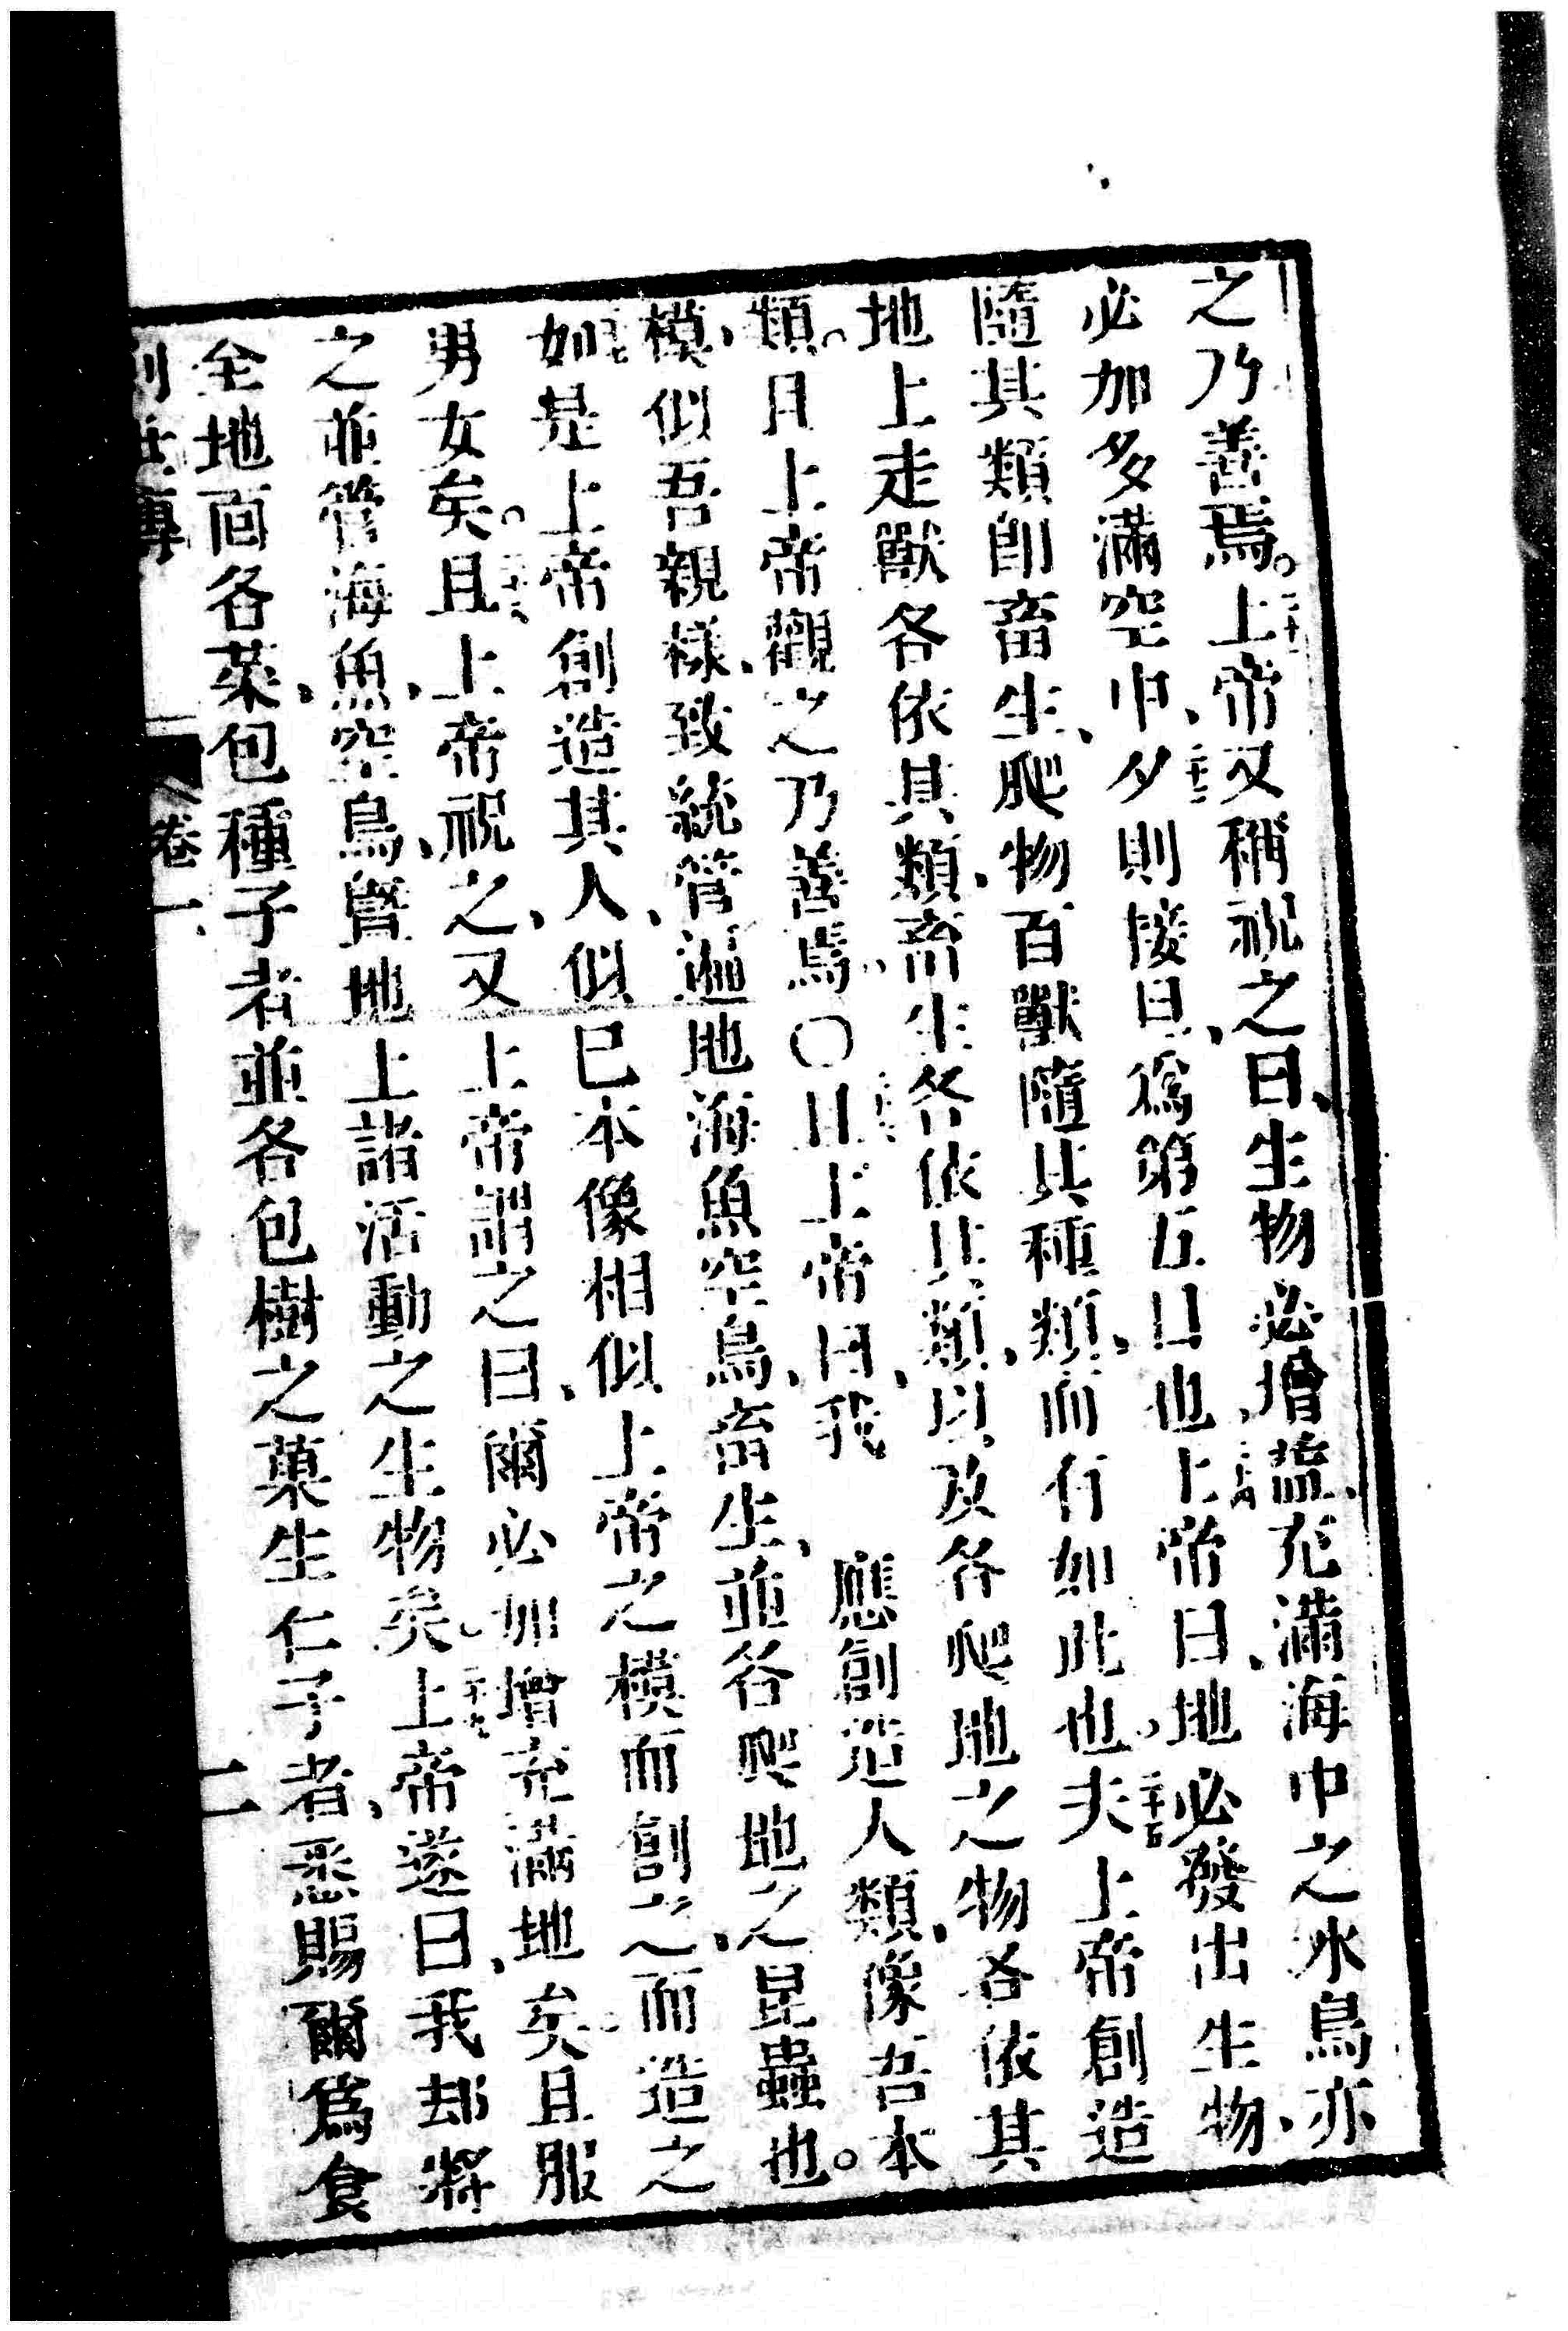 之乃善焉。上帝又稱祝之曰、生物必增益、充滿海中之水鳥亦
必加多滿空中、夕則接旦、為第五日也、上帝曰、地必發出生物、
隨其類卽畜生、爬物百獸隨其種類、而行如此也、夫上帝創造
地上走獸各依其類、畜生各依其類、以及各爬地之物各依其
類。且上帝觀之乃善焉、〇且上帝曰、我 應創造人類、像吾本
模、似吾親樣、致統管遍地海魚空鳥、畜生、並各爬地之昆蟲也。
如是上帝創造其人、似已本像相似上帝之模而創之、而造之
男女矣。且上帝祝之、又上帝謂之曰、爾必加增充滿地矣。且服
之並管海魚、空鳥、曁地上諸活動之生物矣。上帝遂曰、我却將
全地面各菜、包種子者並各包樹之菓生仁子者、悉賜爾爲食
卷一 二